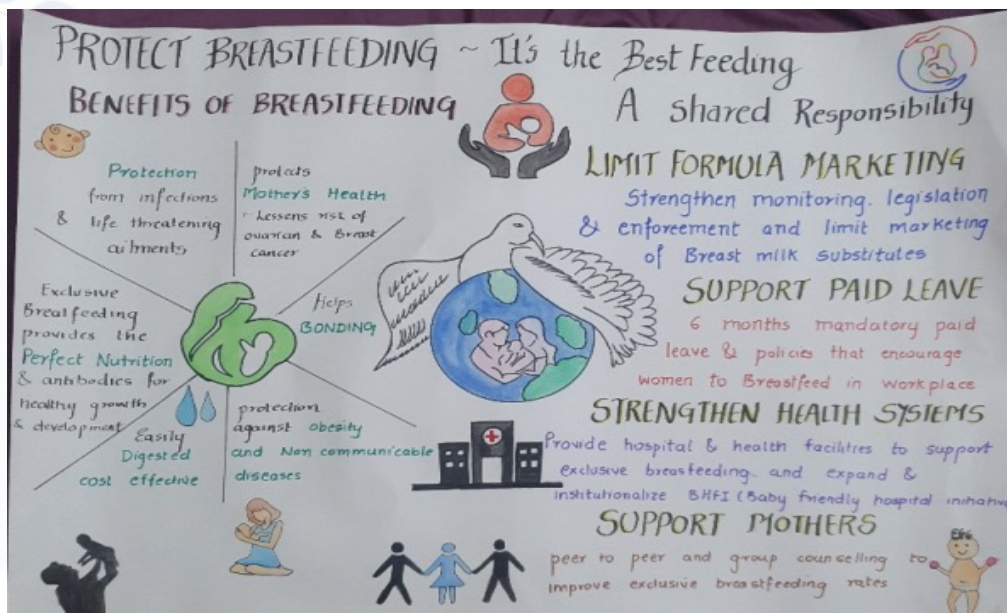 PROTECT BREASTFEEDING ~ It's the Best Feeding
A shared Responsibility
BENEFITS OF BREASTFEEDING
Protection
from infections
& life threatening
ailments
protects
Mother's Health
- Lessens risk of
ovarian & Breast
cancer
Helps
BONDING
Exclusive
Breatfeeding
provides the
Perfect Nutrition
& antibodies for
healthy growth
& development
Easily
Digested
cost effective
protection
against obesity
and Non communicable
diseases
LIMIT FORMULA MARKETING
Strengthen monitoring. legislation
& enforcement and limit marketing
of Breast milk substitutes
SUPPORT PAID LEAVE
6 months mandatory paid
leave & policies that encourage
women to Breastfeed in workplace
STRENGTHEN HEALTH SYSTEMS
Provide hospital & health facilities to support
exclusive breasfeeding and expand &
institutionalize BHFI (Baby friendly hospital initiative
SUPPORT MOTHERS
peer to peer and group counselling to
improve exclusive breastfeeding rates